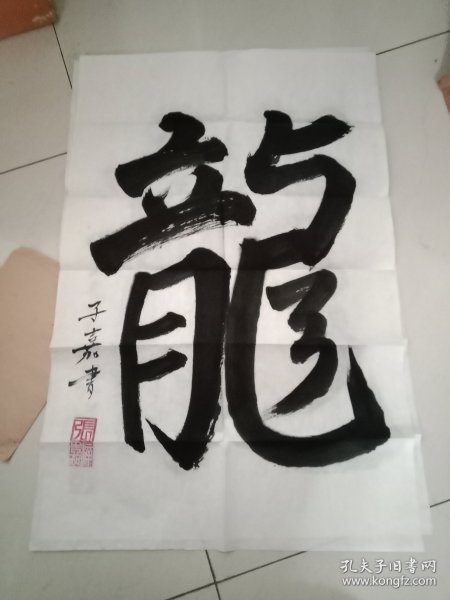 龍
子嘉书
張
孔夫子旧书网
www.kongfz.com